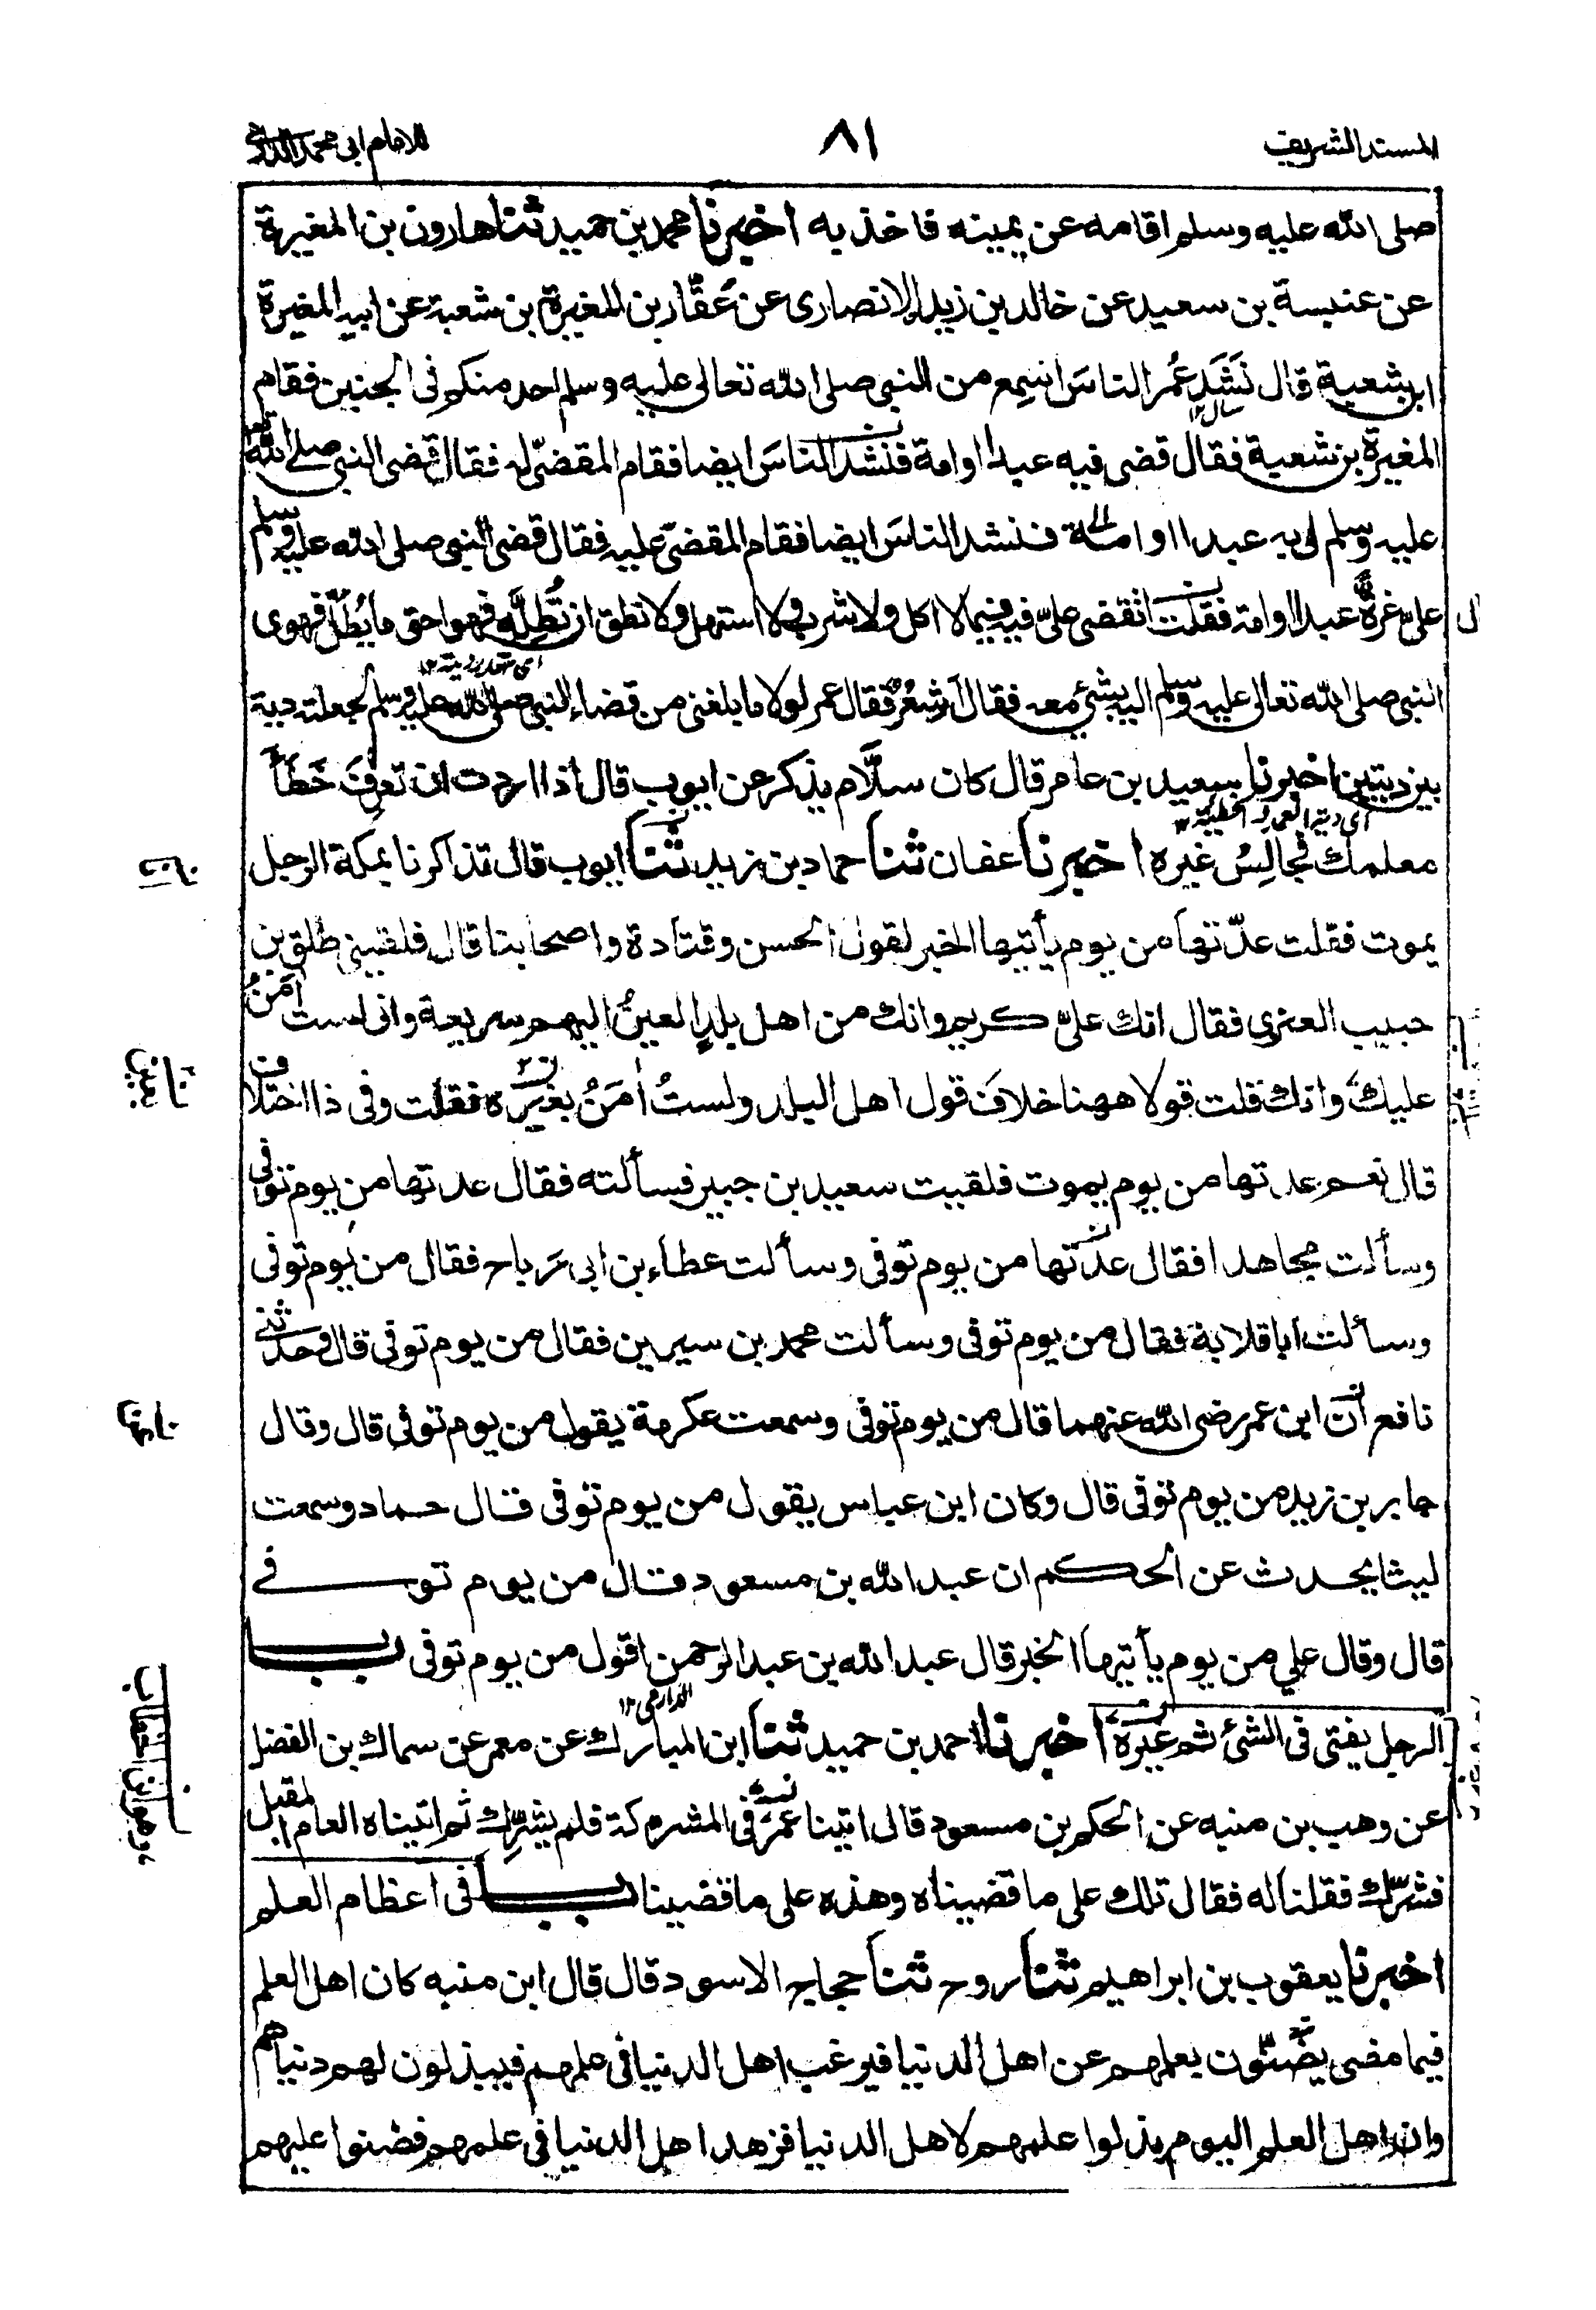 المسند الشريف
٨١
للامام ابى محمد الدارمى
صلى الله عليه وسلم اقامه عن يمينه فاخذ به اخبرنا محمد بن حميد ثنا هارون بن المغيرة
عن عنبسة بن سعيد عن خالد بن زيد الانصارى عن عَقّار بن المغيرة بن شعبة عن ابيه المغيرة
ابن شعبة قال نَشَدَ عُمر الناسَ اسمِع من النبى صلى الله تعالى عليه وسلم احد منكم فى الجنين فقام
المغيرة بن شعبة فقال قضى فيه عبدا اوامة فنشد الناسَ ايضا فقام المقضىّ له فقال قضى النبى صلى الله
عليه وسلم لى به عبدا اوامة فنشد الناسَ ايضا فقام المقضىّ عليه فقال قضى النبى صلى الله عليه وسلم
علىّ غرةً عبدا اوامة فقلت اتقضى علىّ فيه فيما لا اكل ولا شرب ولا استهل ولا نطق ان تُطِلّه فهو احق ما يُطَلّ فهوى
النبى صلى الله تعالى عليه وسلم اليه بشئ معه فقال اَشِعْرٌ فقال عمر لولا ما بلغنى من قضاء النبى صلى الله عليه وسلم لجعلته دية
بين ديتين اخبرنا سعيد بن عامر قال كان سلَّام يذكر عن ايوب قال اذا اردت ان تعرِفَ خَطَأَ
معلمك فجالِسْ غيره اخبرنا عفان ثنا حماد بن زيد ثنا ايوب قال تذاكرنا بمكة الرجل
يموت فقلت عدّتها من يوم يأتيها الخبر لقول الحسن وقتادة واصحابنا قال فلقينى طلق بن
حبيب العنزى فقال انك علىّ كريم وانك من اهل بلدٍ العينُ اليهم سريعة وانى لست اٰمَنُ
عليك وانك قلت قولا ههنا خلافَ قول اهل البلد ولستُ اٰمَنُ بغيره فقلت وفى ذا اختلاف
قال نعم عدتها من يوم يموت فلقيت سعيد بن جبير فسألته فقال عدتها من يوم توفى
وسألت مجاهدا فقال عدتها من يوم توفى وسألت عطاء بن ابى رَباح فقال من يوم توفى
وسألت ابا قلابة فقال من يوم توفى وسألت محمد بن سيرين فقال من يوم توفى قال وحدثنى
نافع انّ ابن عمر رضى الله عنهما قال من يوم توفى وسمعت عكرمة يقول من يوم توفى قال وقال
جابر بن زيد من يوم توفى قال وكان ابن عباس يقول من يوم توفى قال حماد وسمعت
ليثا يحدث عن الحكم ان عبد الله بن مسعود قال من يوم توفى
قال وقال على من يوم يأتيها الخبر قال عبد الله بن عبد الرحمن اقول من يوم توفى باب
الدارمى ١٢
الرجل يفتى فى الشئ ثم غَيّرَه اخبرنا احمد بن حميد ثنا ابن المبارك عن معمر عن سماك بن الفضل
عن وهب بن منبه عن الحكم بن مسعود قال اتينا عمرَ فى المشركة فلم يشرِّك ثم اتيناه العام المقبل
فشرّك فقلنا له فقال تلك على ما قضيناه وهذه على ما قضينا باب فى اعظام العلم
اخبرنا يعقوب بن ابراهيم ثنا روح ثنا حجاج الاسود قال قال ابن منبه كان اهل العلم
فيما مضى يضنّون بعلمهم عن اهل الدنيا فيرغب اهل الدنيا فى علمهم فيبذلون لهم دنياهم
وان اهل العلم اليوم بذلوا علمهم لاهل الدنيا فزهد اهل الدنيا فى علمهم فضنوا عليهم